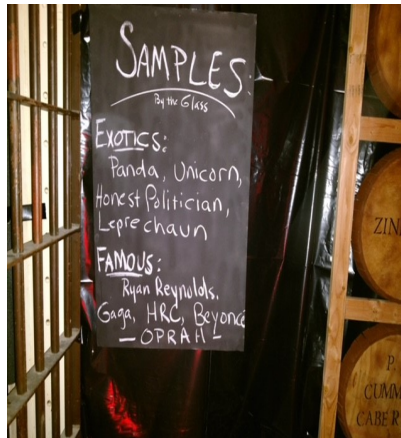 SAMPLES:
By the Glass
EXOTICS:
Panda, Unicorn,
Honest Politician,
Leprechaun
FAMOUS:
Ryan Reynolds,
Gaga, HRC, Beyoncé
— OPRAH —
ZIN
P.
CUMM
CABER